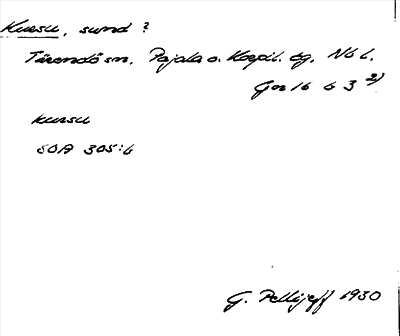 Kursu, sund ?
Tärendö sn, Pajala o. Korpil. tg, Nb l.
Gor 16 G 3 2)
kursu
SOA 305:6
G. Pellijeff 1930